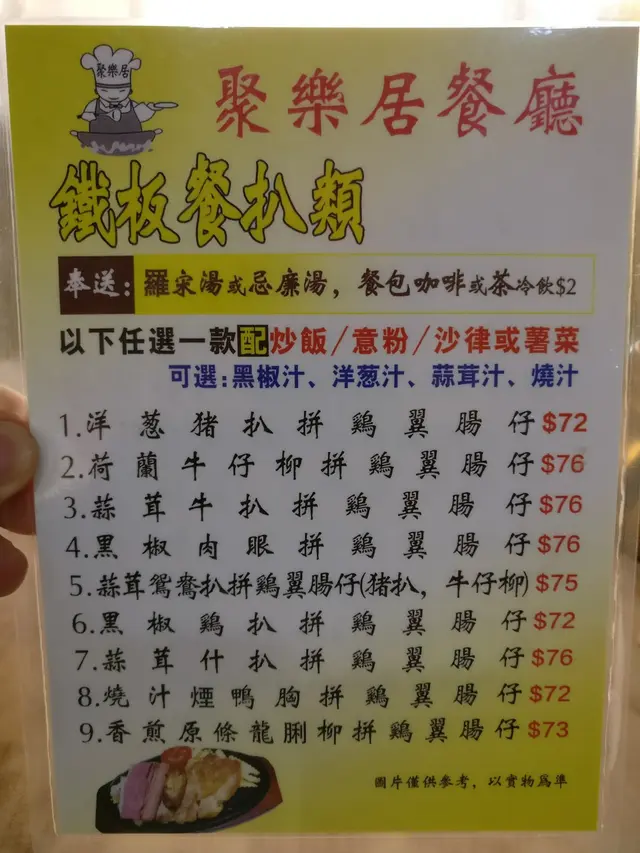 聚樂居
聚樂居餐廳
鐵板餐扒類
奉送：羅宋湯或忌廉湯，餐包咖啡或茶冷飲$2
以下任選一款配炒飯/意粉/沙律或薯菜
可選：黑椒汁、洋葱汁、蒜茸汁、燒汁
1.洋葱猪扒拼鷄翼腸仔$72
2.荷蘭牛仔柳拼鷄翼腸仔$76
3.蒜茸牛扒拼鷄翼腸仔$76
4.黑椒肉眼拼鷄翼腸仔$76
5.蒜茸鴛鴦扒拼鷄翼腸仔(猪扒，牛仔柳)$75
6.黑椒鷄扒拼鷄翼腸仔$72
7.蒜茸什扒拼鷄翼腸仔$76
8.燒汁煙鴨胸拼鷄翼腸仔$72
9.香煎原條龍脷柳拼鷄翼腸仔$73
圖片僅供參考，以實物爲準